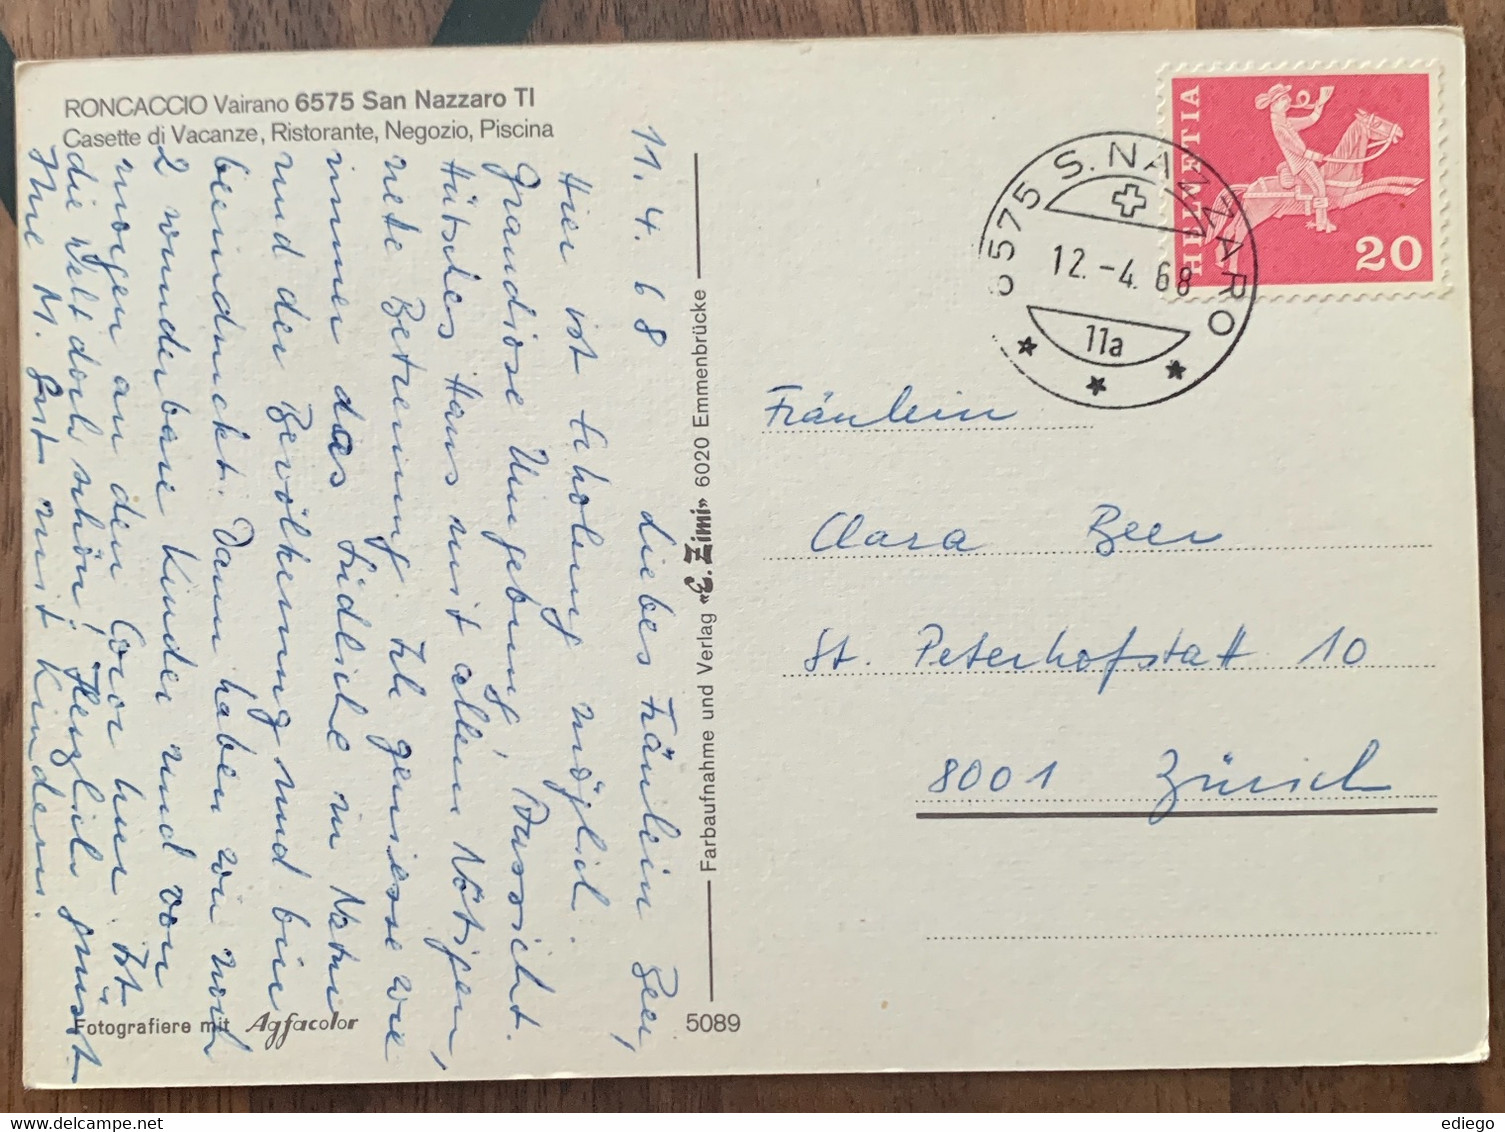 RONCACCIO Vairano 6575 San Nazzaro TI
Casette di Vacanze, Ristorante, Negozio, Piscina
11. 4. 68 Liebes Fräulein Beer,
Hier ist Erholung möglich.
Grandiose Umgebung, Aussicht.
Hübsches Haus mit allem Nötigen,
nete Betreuung. Ich geniesse wie
immer das Südliche in Natur
und der Bevölkerung und bin
beeindruckt. Dann haben wir noch
2 wunderbare Kinder und von
morgen an den hier. Ist
die Welt doch schön! Herzlich grüsst
Ihre M. mit Kindern.
Fotografiere mit Agfacolor
5089
Farbaufnahme und Verlag «E. Zimi» 6020 Emmenbrücke
HELVETIA
20
6575 S. NAZZARO
12.-4. 68
11a
Fräulein
Clara Beer
St. Peterhofstatt 10
8001 Zürich
ediego